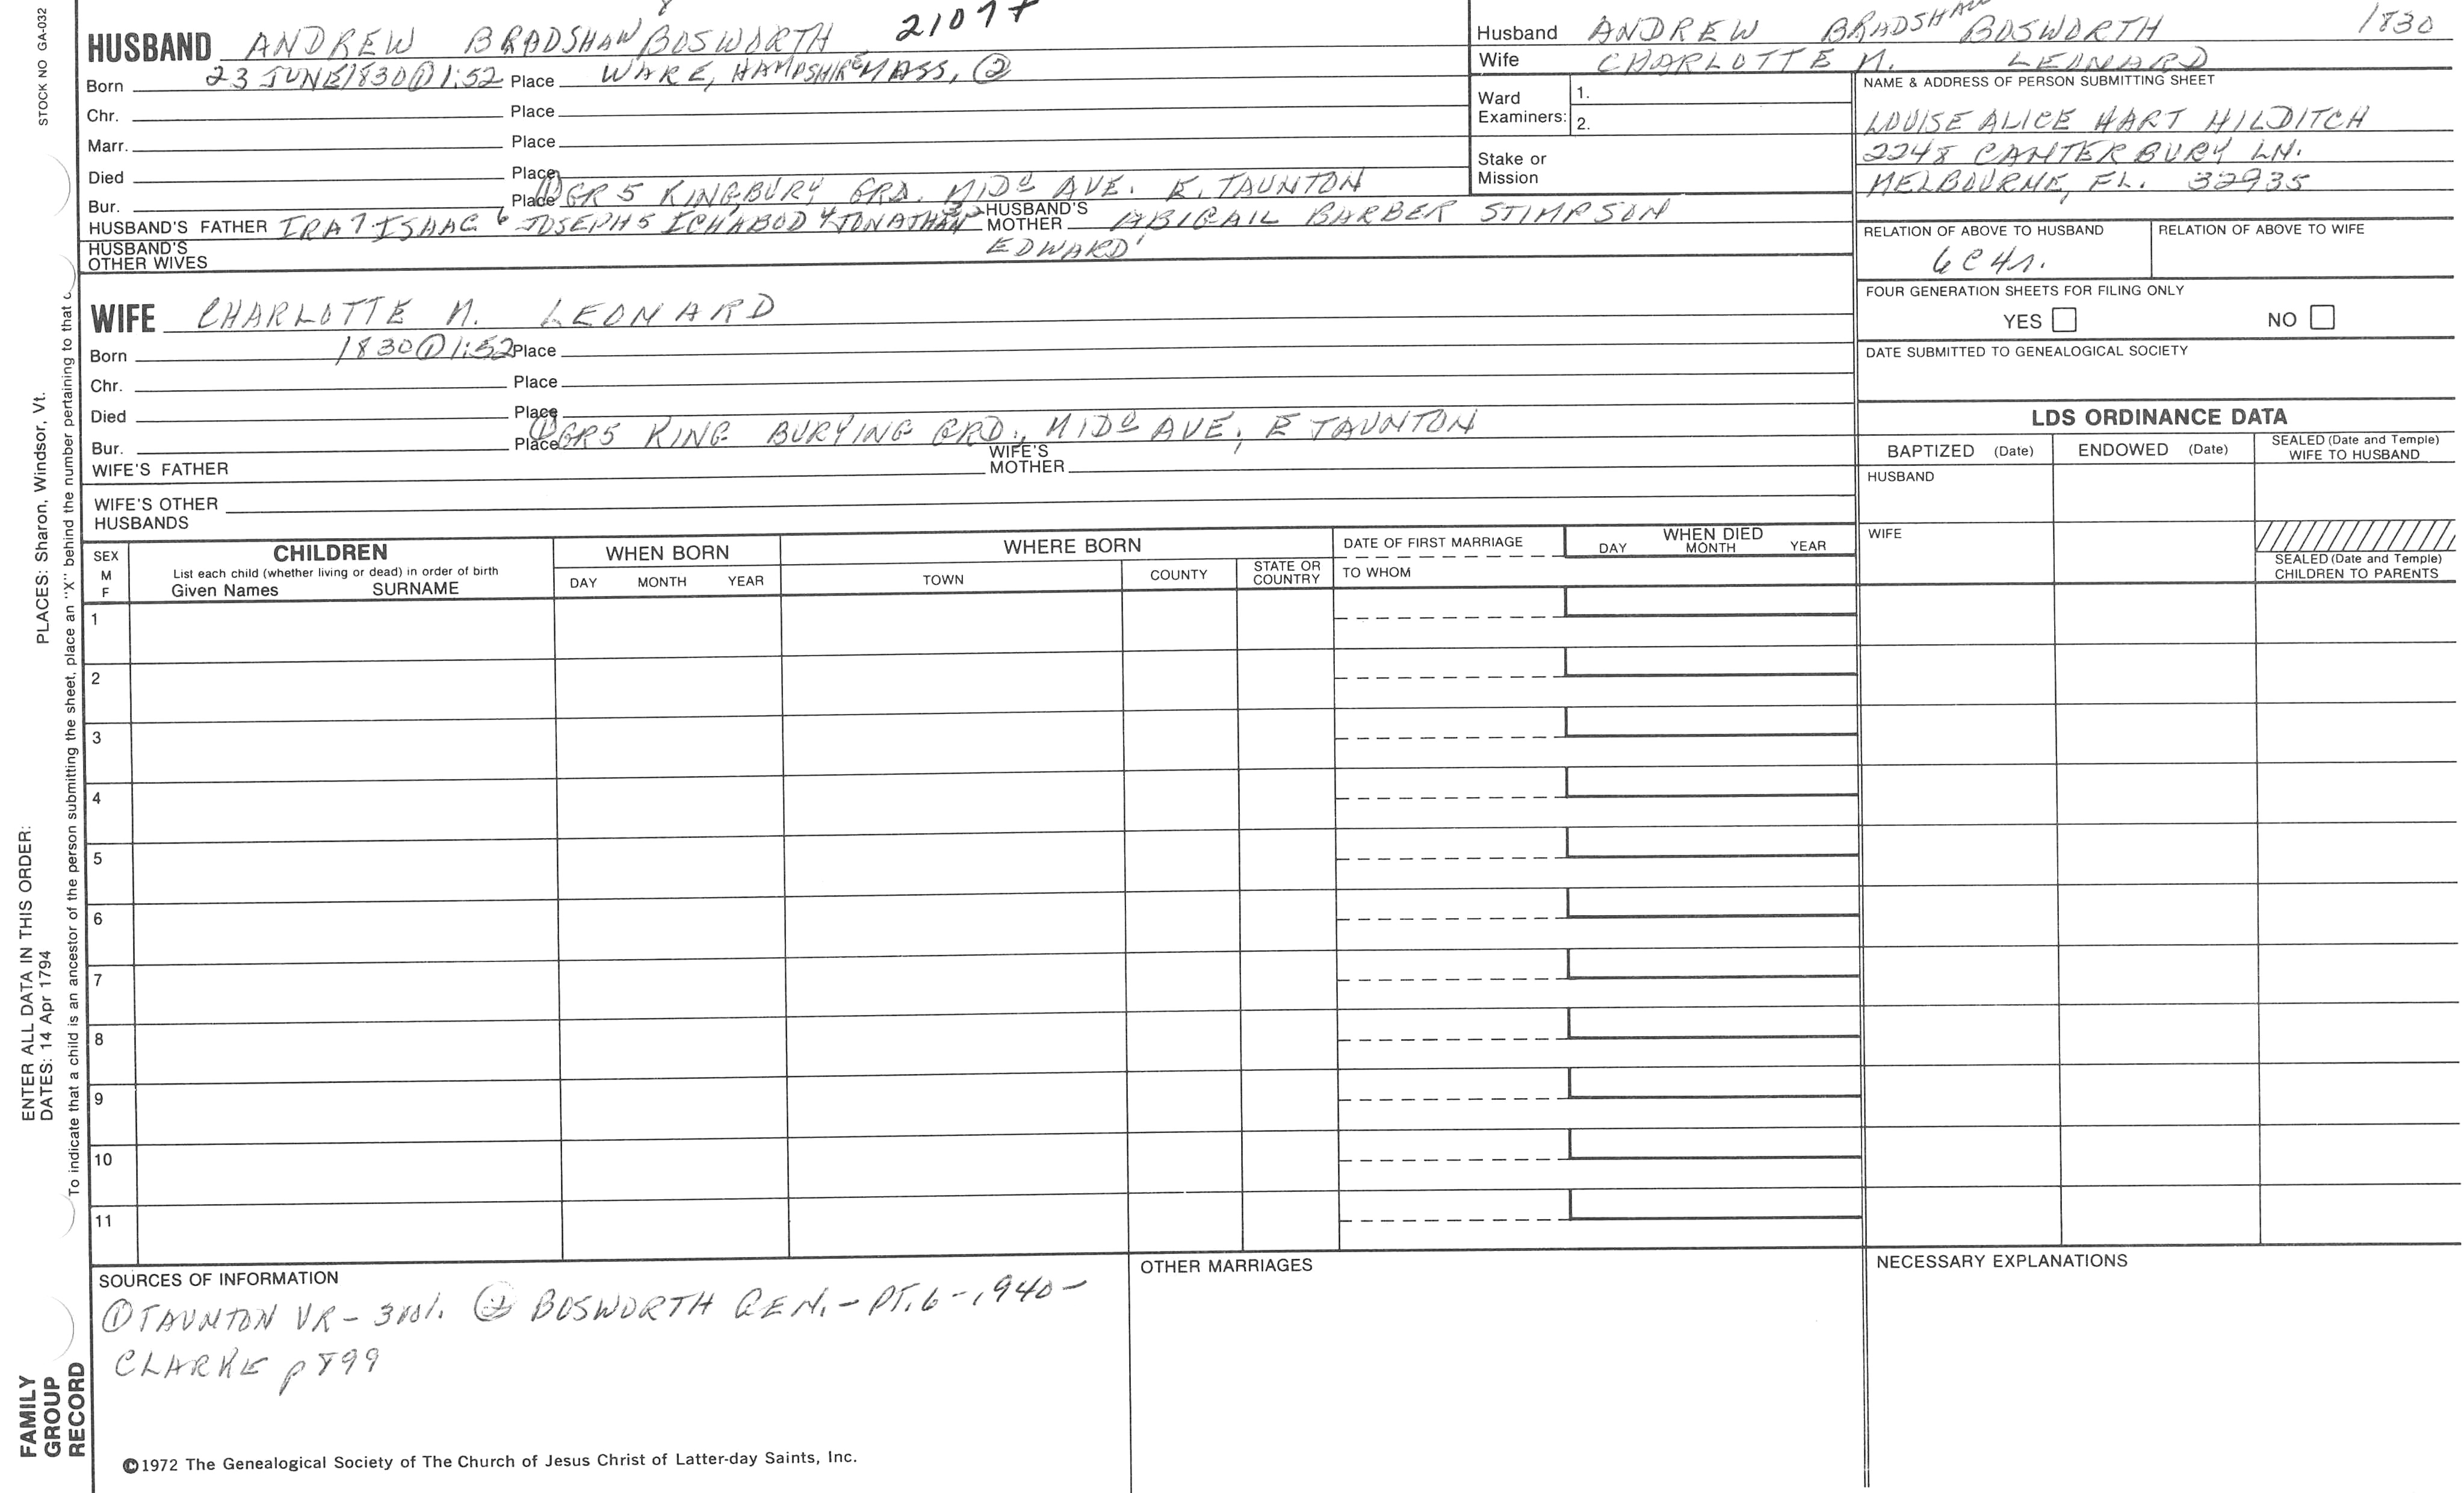 STOCK NO GA-032
21077
HUSBAND ANDREW BRADSHAW BOSWORTH
Born 23 JUNE 1830 ① 1:52 Place WARE, HAMPSHIRE MASS, ②
Chr. Place
Marr. Place
Died Place
Bur. Place ① GR 5 KINGBURY GRD. MIDᴸ AVE. E. TAUNTON
HUSBAND'S FATHER IRA 7 ISAAC 6 JOSEPH 5 ICHABOD 4 JONATHAN HUSBAND'S MOTHER ABIGAIL BARBER STIMPSON
EDWARD'
HUSBAND'S OTHER WIVES
WIFE CHARLOTTE M. LEONARD
Born 1830 ① 1:52 Place
Chr. Place
Died Place
Bur. Place ① GR5 KING BURYING GRD., MIDᴸ AVE, E TAUNTON
WIFE'S FATHER WIFE'S MOTHER
WIFE'S OTHER HUSBANDS
Husband ANDREW BRADSHAW BOSWORTH 1830
Wife CHARLOTTE M. LEONARD
Ward Examiners: 1.
2.
Stake or Mission
NAME & ADDRESS OF PERSON SUBMITTING SHEET
LOUISE ALICE HART HILDITCH
2248 CANTERBURY LN.
MELBOURNE, FL. 32935
RELATION OF ABOVE TO HUSBAND RELATION OF ABOVE TO WIFE
6C4r.
FOUR GENERATION SHEETS FOR FILING ONLY
YES NO
DATE SUBMITTED TO GENEALOGICAL SOCIETY
LDS ORDINANCE DATA
BAPTIZED (Date) ENDOWED (Date) SEALED (Date and Temple) WIFE TO HUSBAND
HUSBAND
WIFE
SEALED (Date and Temple) CHILDREN TO PARENTS
SEX M F
CHILDREN
List each child (whether living or dead) in order of birth
Given Names SURNAME
WHEN BORN
DAY MONTH YEAR
WHERE BORN
TOWN COUNTY STATE OR COUNTRY
DATE OF FIRST MARRIAGE
TO WHOM
WHEN DIED
DAY MONTH YEAR
1
2
3
4
5
6
7
8
9
10
11
SOURCES OF INFORMATION
① TAUNTON VR - ② BOSWORTH GEN. - PT. 6 - 1940 -
CLARKE p 899
OTHER MARRIAGES
NECESSARY EXPLANATIONS
©1972 The Genealogical Society of The Church of Jesus Christ of Latter-day Saints, Inc.
FAMILY GROUP RECORD
ENTER ALL DATA IN THIS ORDER:
DATES: 14 Apr 1794
PLACES: Sharon, Windsor, Vt.
To indicate that a child is an ancestor of the person submitting the sheet, place an "X" behind the number pertaining to that c